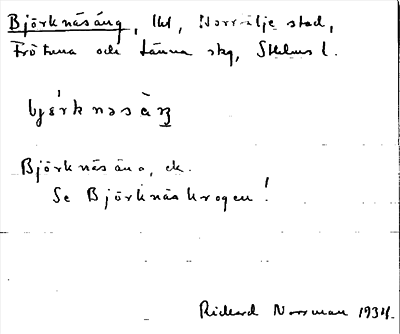 Björknäsäng, lkl, Norrtälje stad,
Frötuna och Länna skg, Sthlms l.
Björknäsäng, ek.
Se Björknäskrogen!
Rickard Norrman 1934.